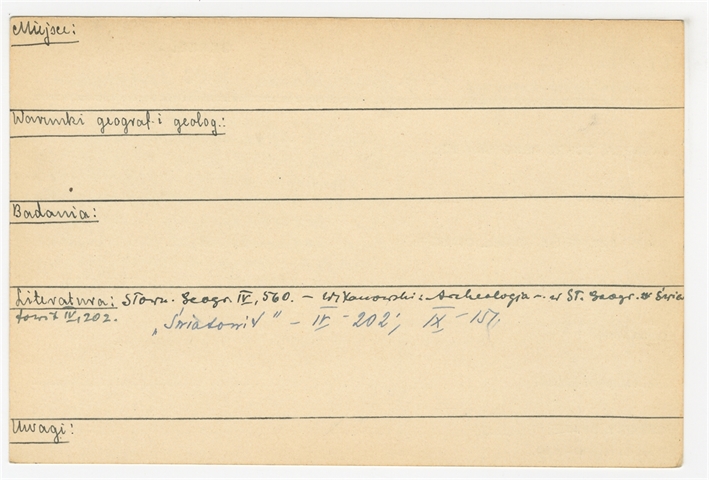 Miejsce:
Warunki geograf. i geolog.:
Badania:
Literatura: Słown. Geogr. IV, 560. – Wikanowski: Archeologia – w Sł. Geogr. w Świa
towit IV, 202.
„Światowit" – IV – 202; IX – 157.
Uwagi: